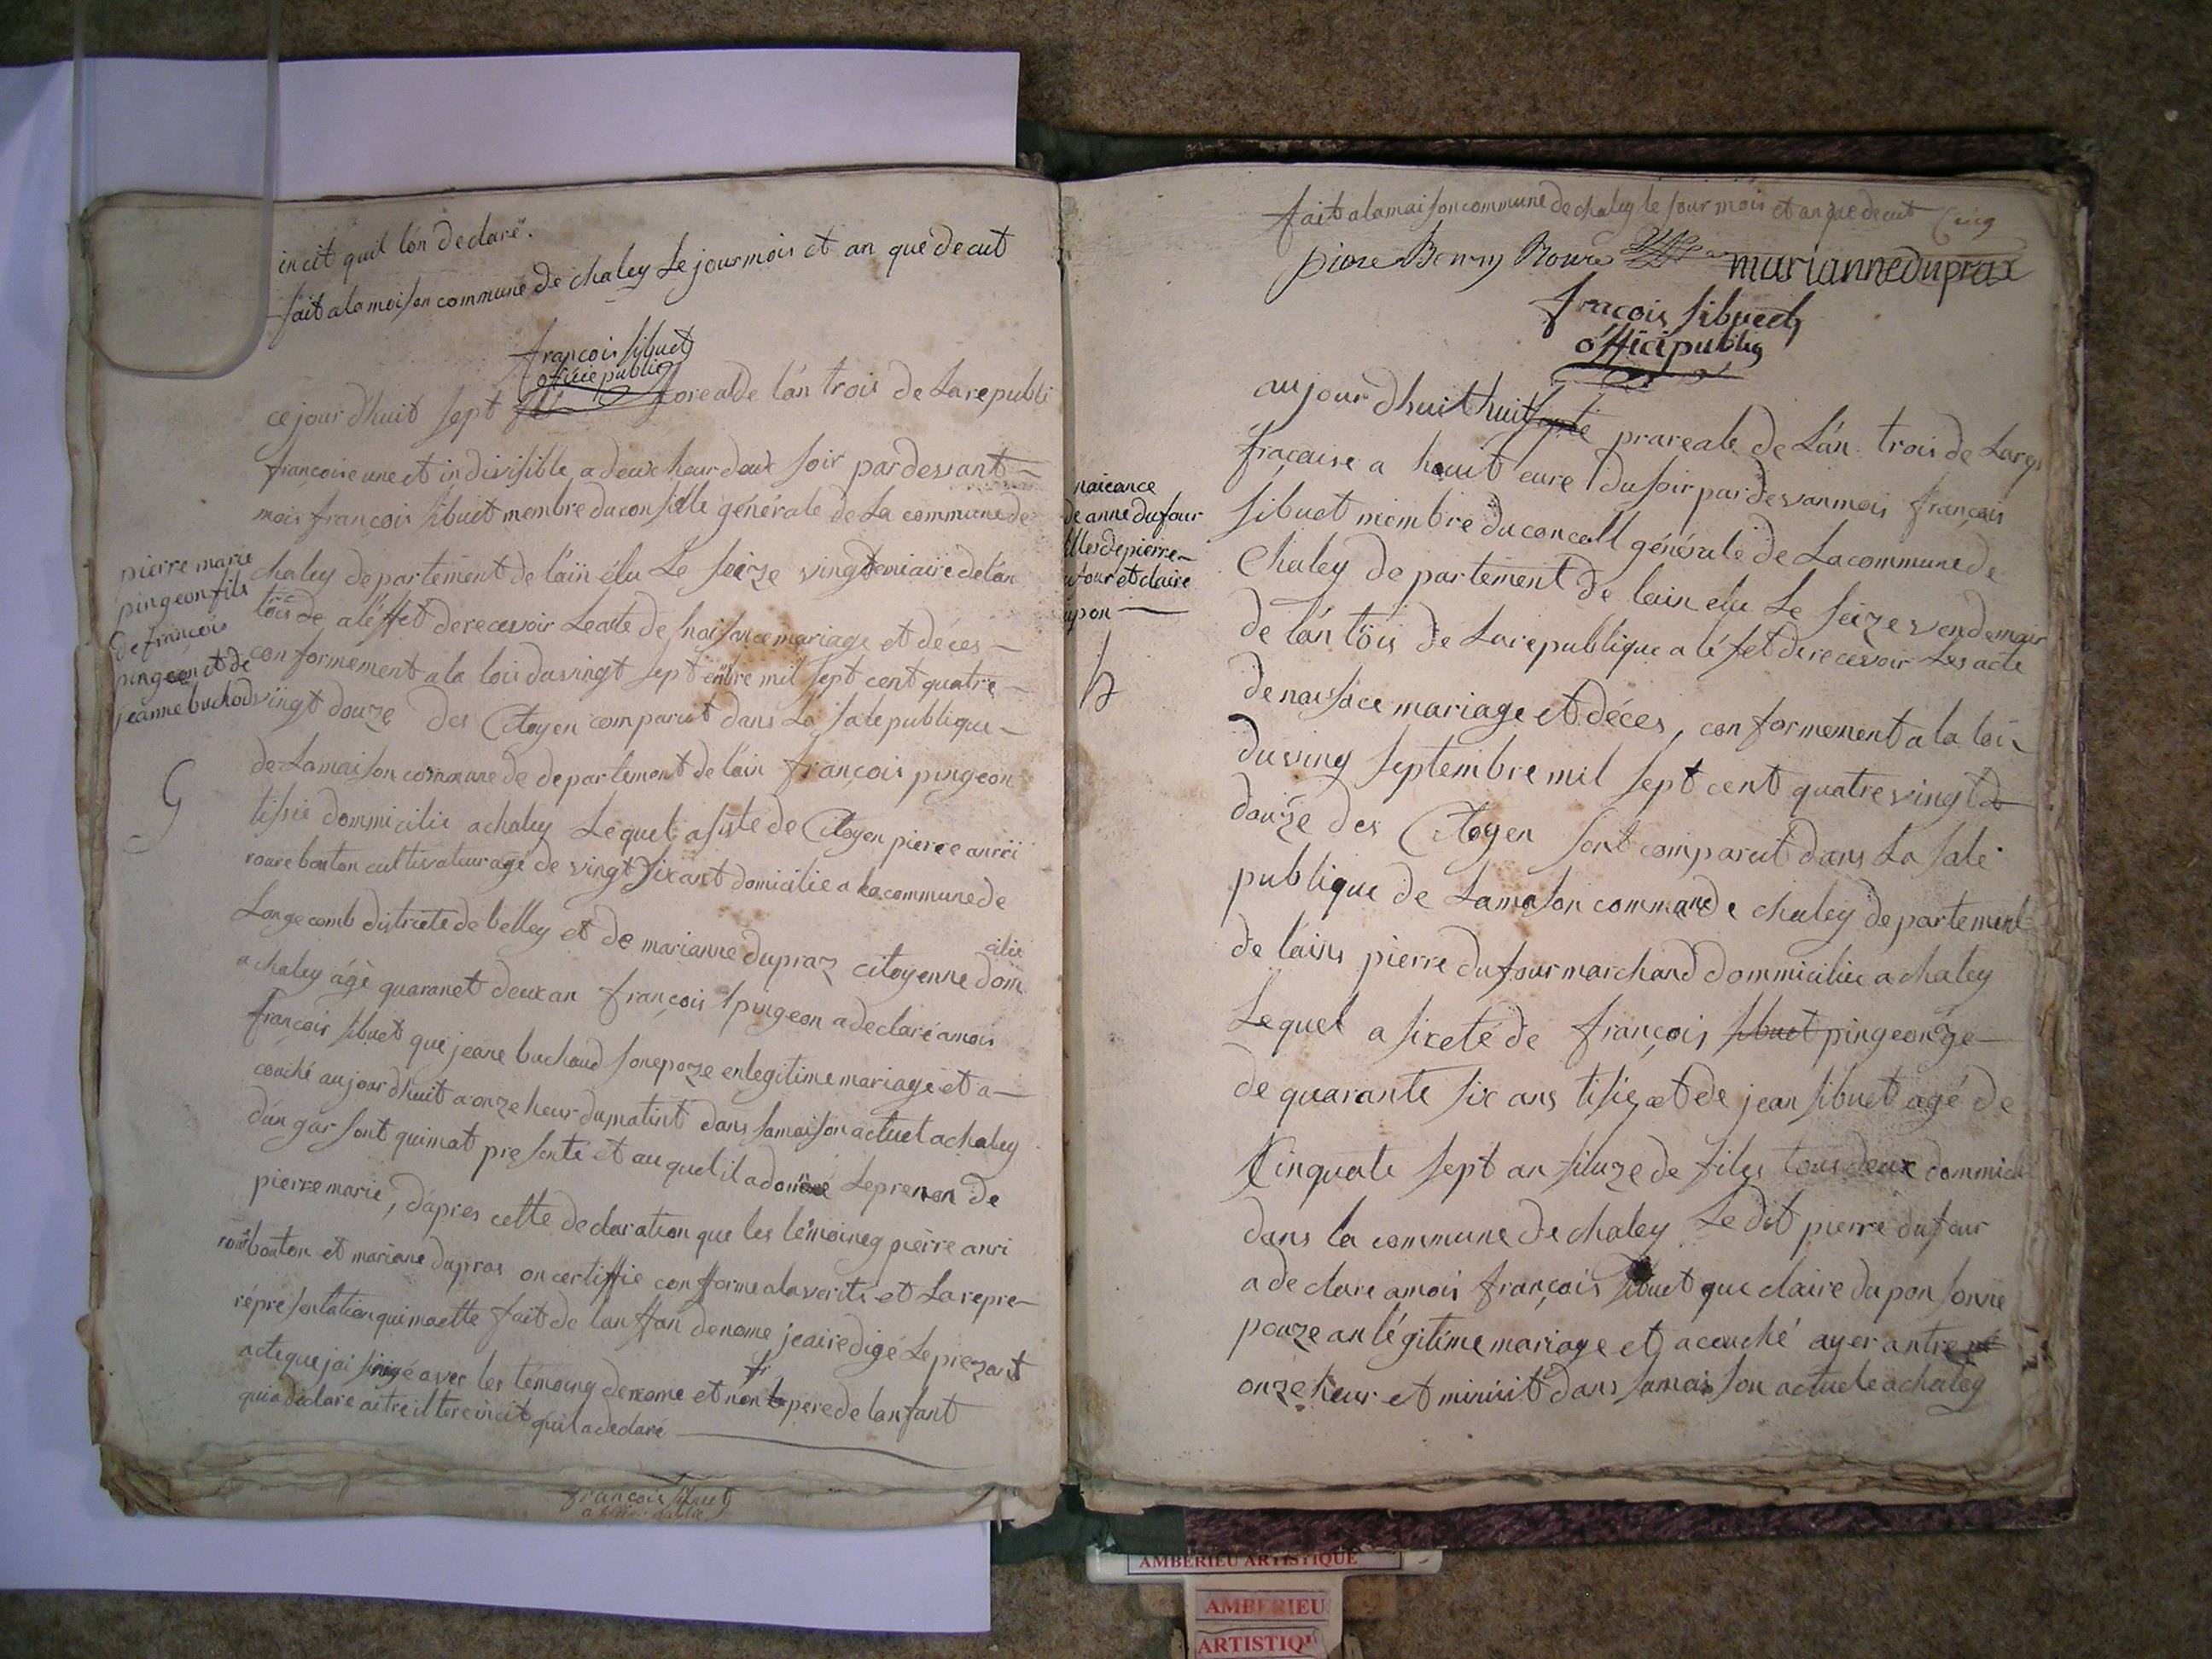 incit quil lon declaré.
fait ala maison commune de chaley Le jour mois et an que decut
françois sibuet
officie public
ce jour dhuit sept floreal de lán trois de La republi
françoise une et indivisible a deux heur deux soir par devant
mois françois sibuet membre du conselle générale de La commune de
chaley departement de láin élu Le seize vingtemiaire de lan
tois de a léffet de recevoir Leacte de naisance mariage et déces
conformement a la lois du vingt septembre mil sept cent quatre
vingt douze des Citoyen comparut dans La sale publique
de La maison commune de departement de láin françois pingeon
tisie dommicilie a chaley Lequel asiste de Citoyen pierre anrii
roux bouton cultivateur age de vingt six ant domicilie a La commune de
Longecomb districte de belley et de marianne dupraz citoyenne domicilie
a chaley ágé quaranet deux an françois pingeon a declaré a mois
françois sibuet que jeane buchoud son epoze en legitime mariage et a
couché aujourdhuit a onze heur du matint dans sa maison actuel a chaley
dún garsont qui mat presenté et au quel il a donné Le prenon de
pierre marie, dápres cette declaration que les témoineg pierre anri
roux bouton et mariane dupras on certiffie confforme a la verite et La repre
répresentation qui ma ette fait de lanffan denome je ai redigé Le prezant
acte que jai singé avec les témoing denome et non le pere de lanfant
qui a déclare aitre iltere incit quil a declaré
françois sibuet
officie public
pierre marie
pingeon fils
de françois
pingeon et de
jeanne buchod
G
fait a la maison commune de chaley le jour mois et an que decut
cinq
piere Henry Roux
marianne duprax
fracois sibuet
officié public
aujourdhuit huit prareale de Lán trois de Larep
fracaise a houit eure du soir par devan mois françois
sibuet membre du concell générale de La commune de
Chaley departement de lain elu Le seize vendemair
de lán tóis de La republique a léfet de recevoir Les acte
de naisace mariage et déces, conformement a la lois
du ving septembre mil sept cent quatre vingt
douze des Citoyen sont comparut dans La sale
publique de La maison commune de chaley departement
de láins pierre dufour marchand dommicilie a chaley
Lequel a sixeté de françois sibuet pingeon âge
de quarante six ans tisie et de jean sibuet agé de
Cinquate sept an filuze de files tous deux dommicili
dans la commune de chaley Le dit pierre dufour
a declare a mois françois sibuet que claire dupon sonne
pouze an légitime mariage et acouché ayer antre
onze heur et minuit dans sa maison actuele a chaley
naicance
de anne dufour
filles de pierre
dufour et claire
dupon
h
AMBERIEU ARTISTIQUE
AMBERIEU
ARTISTIQU